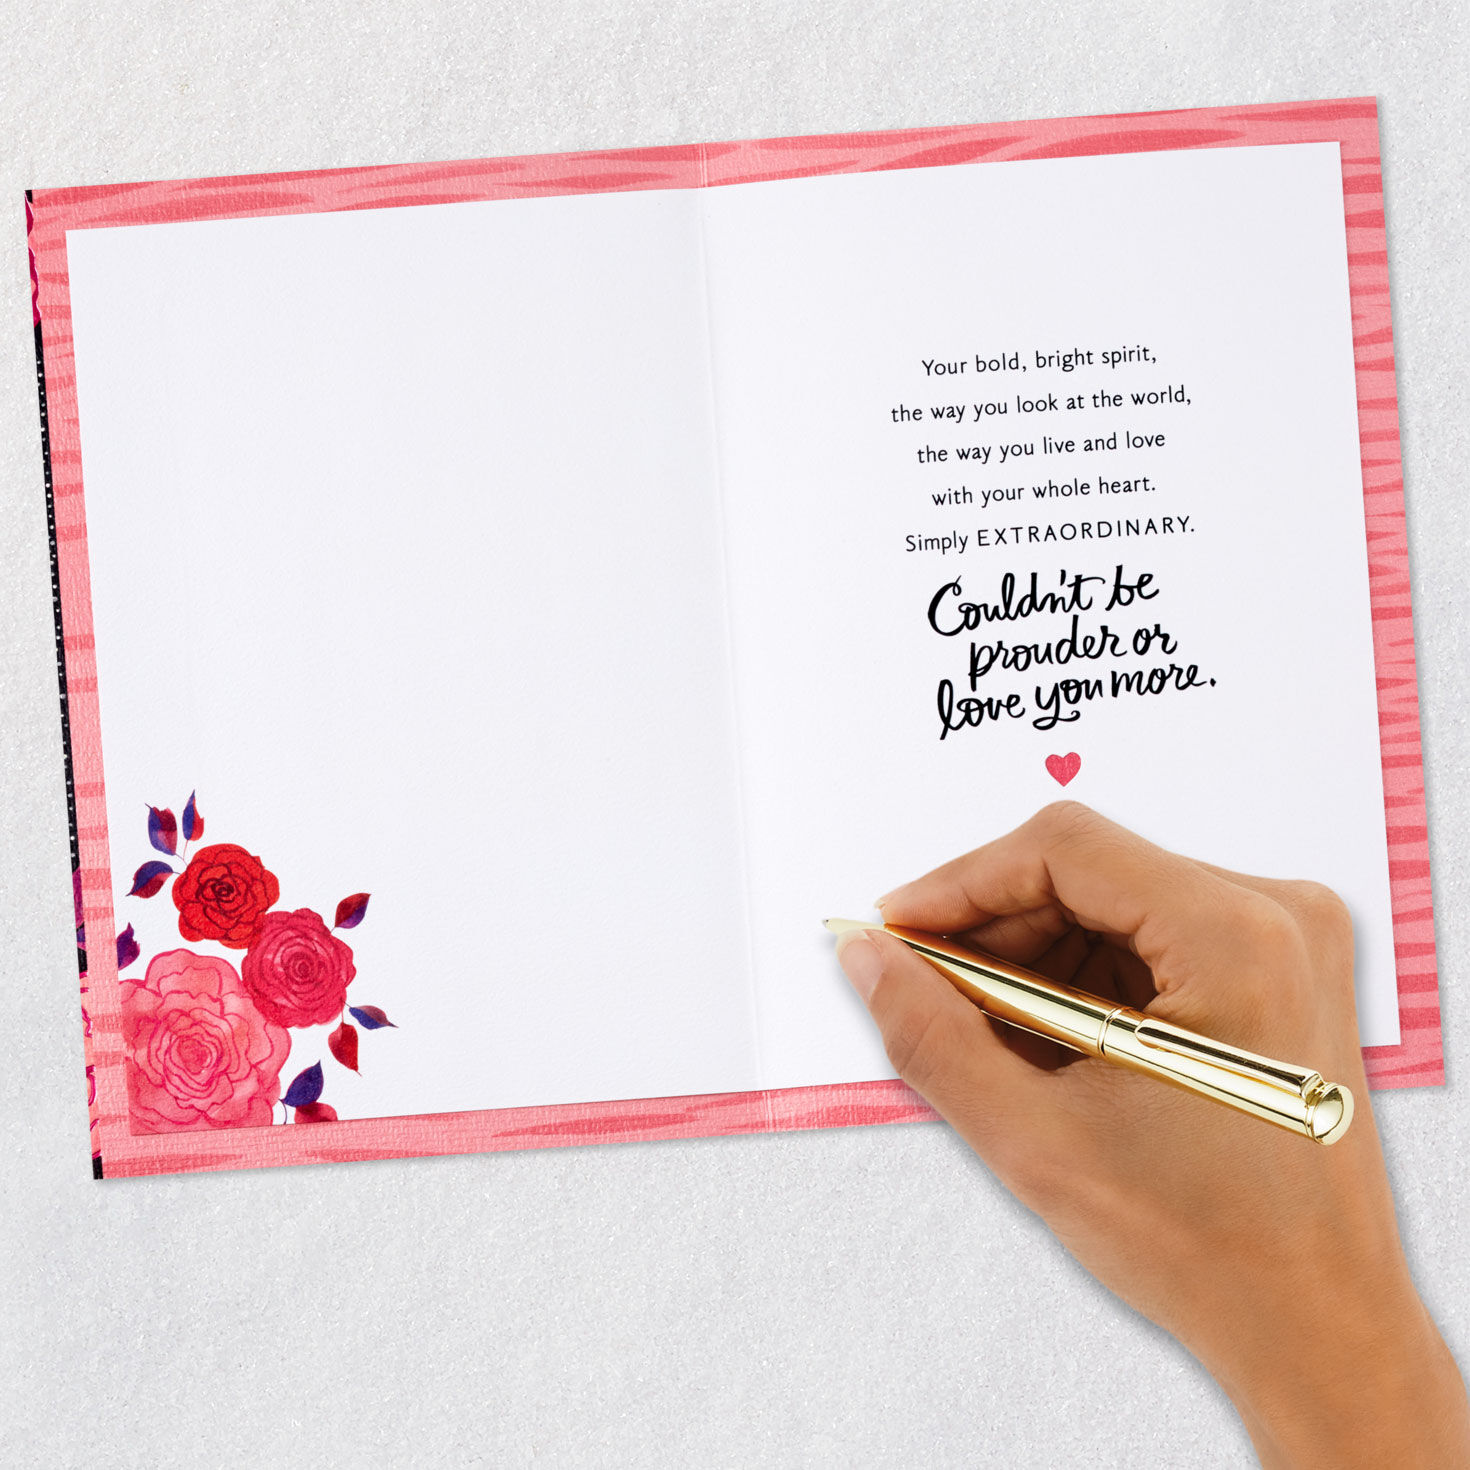 Your bold, bright spirit,
the way you look at the world,
the way you live and love
with your whole heart.
Simply EXTRAORDINARY.
Couldn't be
prouder or
love you more.